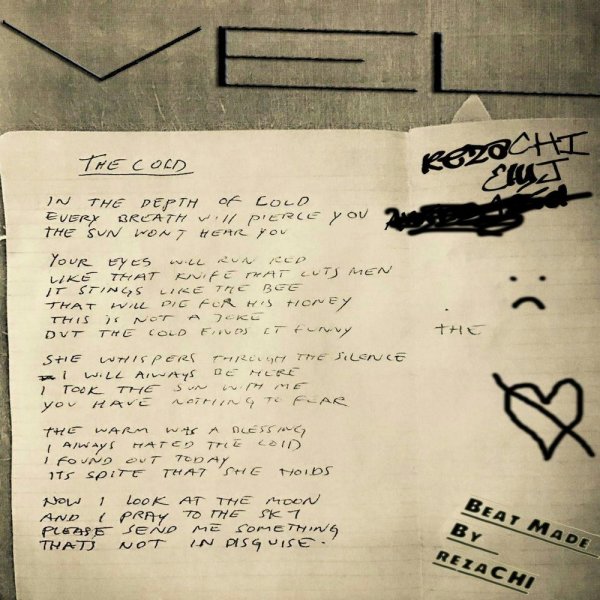 VEL
THE COLD
IN THE DEPTH OF COLD
EVERY BREATH WILL PIERCE YOU
THE SUN WONT HEAR YOU
YOUR EYES WILL RUN RED
LIKE THAT KNIFE THAT CUTS MEN
IT STINGS LIKE THE BEE
THAT WILL DIE FOR HIS HONEY
THIS IS NOT A JOKE
BUT THE COLD FINDS IT FUNNY
SHE WHISPERS THROUGH THE SILENCE
I WILL ALWAYS BE HERE
I TOOK THE SUN WITH ME
YOU HAVE NOTHING TO FEAR
THE WARM WAS A BLESSING
I ALWAYS HATED THE COLD
I FOUND OUT TODAY
ITS SPITE THAT SHE HOLDS
NOW I LOOK AT THE MOON
AND I PRAY TO THE SKY
PLEASE SEND ME SOMETHING
THATS NOT IN DISGUISE.
REZACHI
THE
BEAT MADE
BY
REZACHI